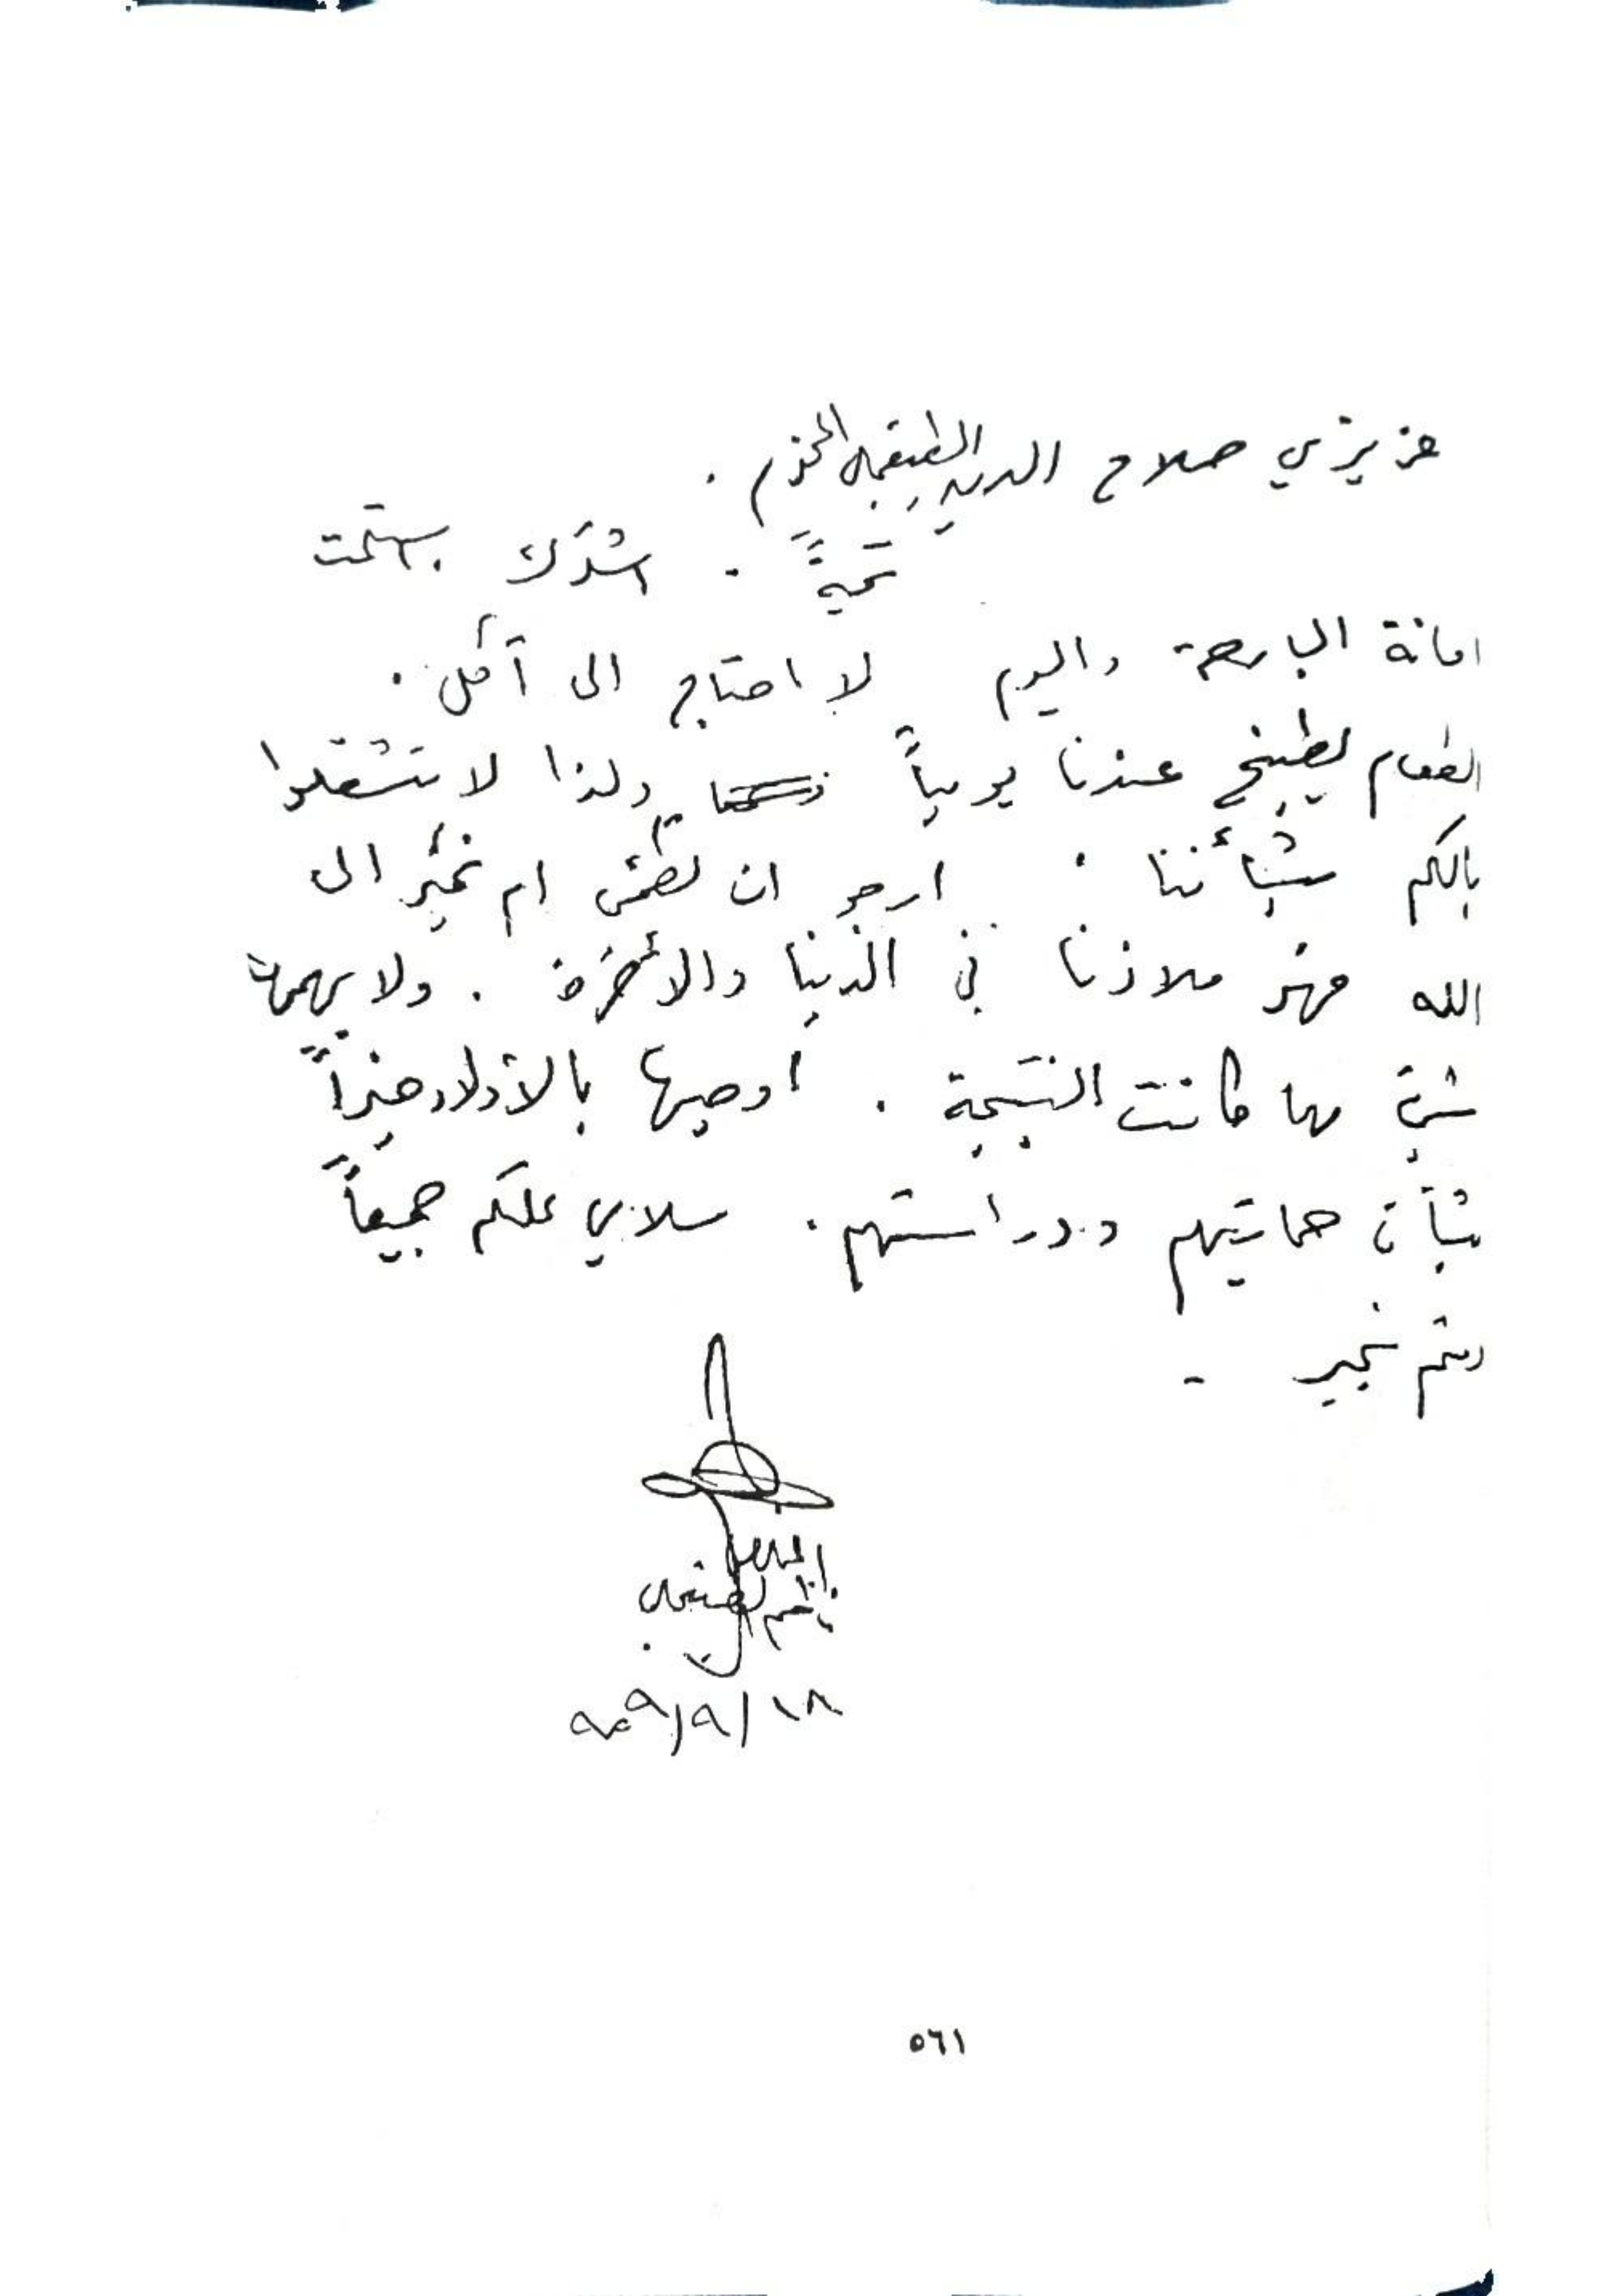 عزيزي صلاح الدين الطبقجلي المحترم .
تحيةً . اشكرك . استلمت
امانة البارحة واليوم لا احتاج الى أكل .
الطعام يطبخ عندنا يومياً ولذا لا تشغلوا
بالكم بشأننا . ارجو ان تطمئن ام نمير الى
الله فهو ملاذنا في الدنيا والأخرة . ولا يهمها
شيئ مهما كانت النتيجة . اوصيها بالأولاد خيراً
بشأن حمايتهم ودراستهم . سلامي عليكم جميعاً
ودمتم بخير -
المخلص
ناظم الطبقجلي
١٨/٩/٩٥٩
٥٦١